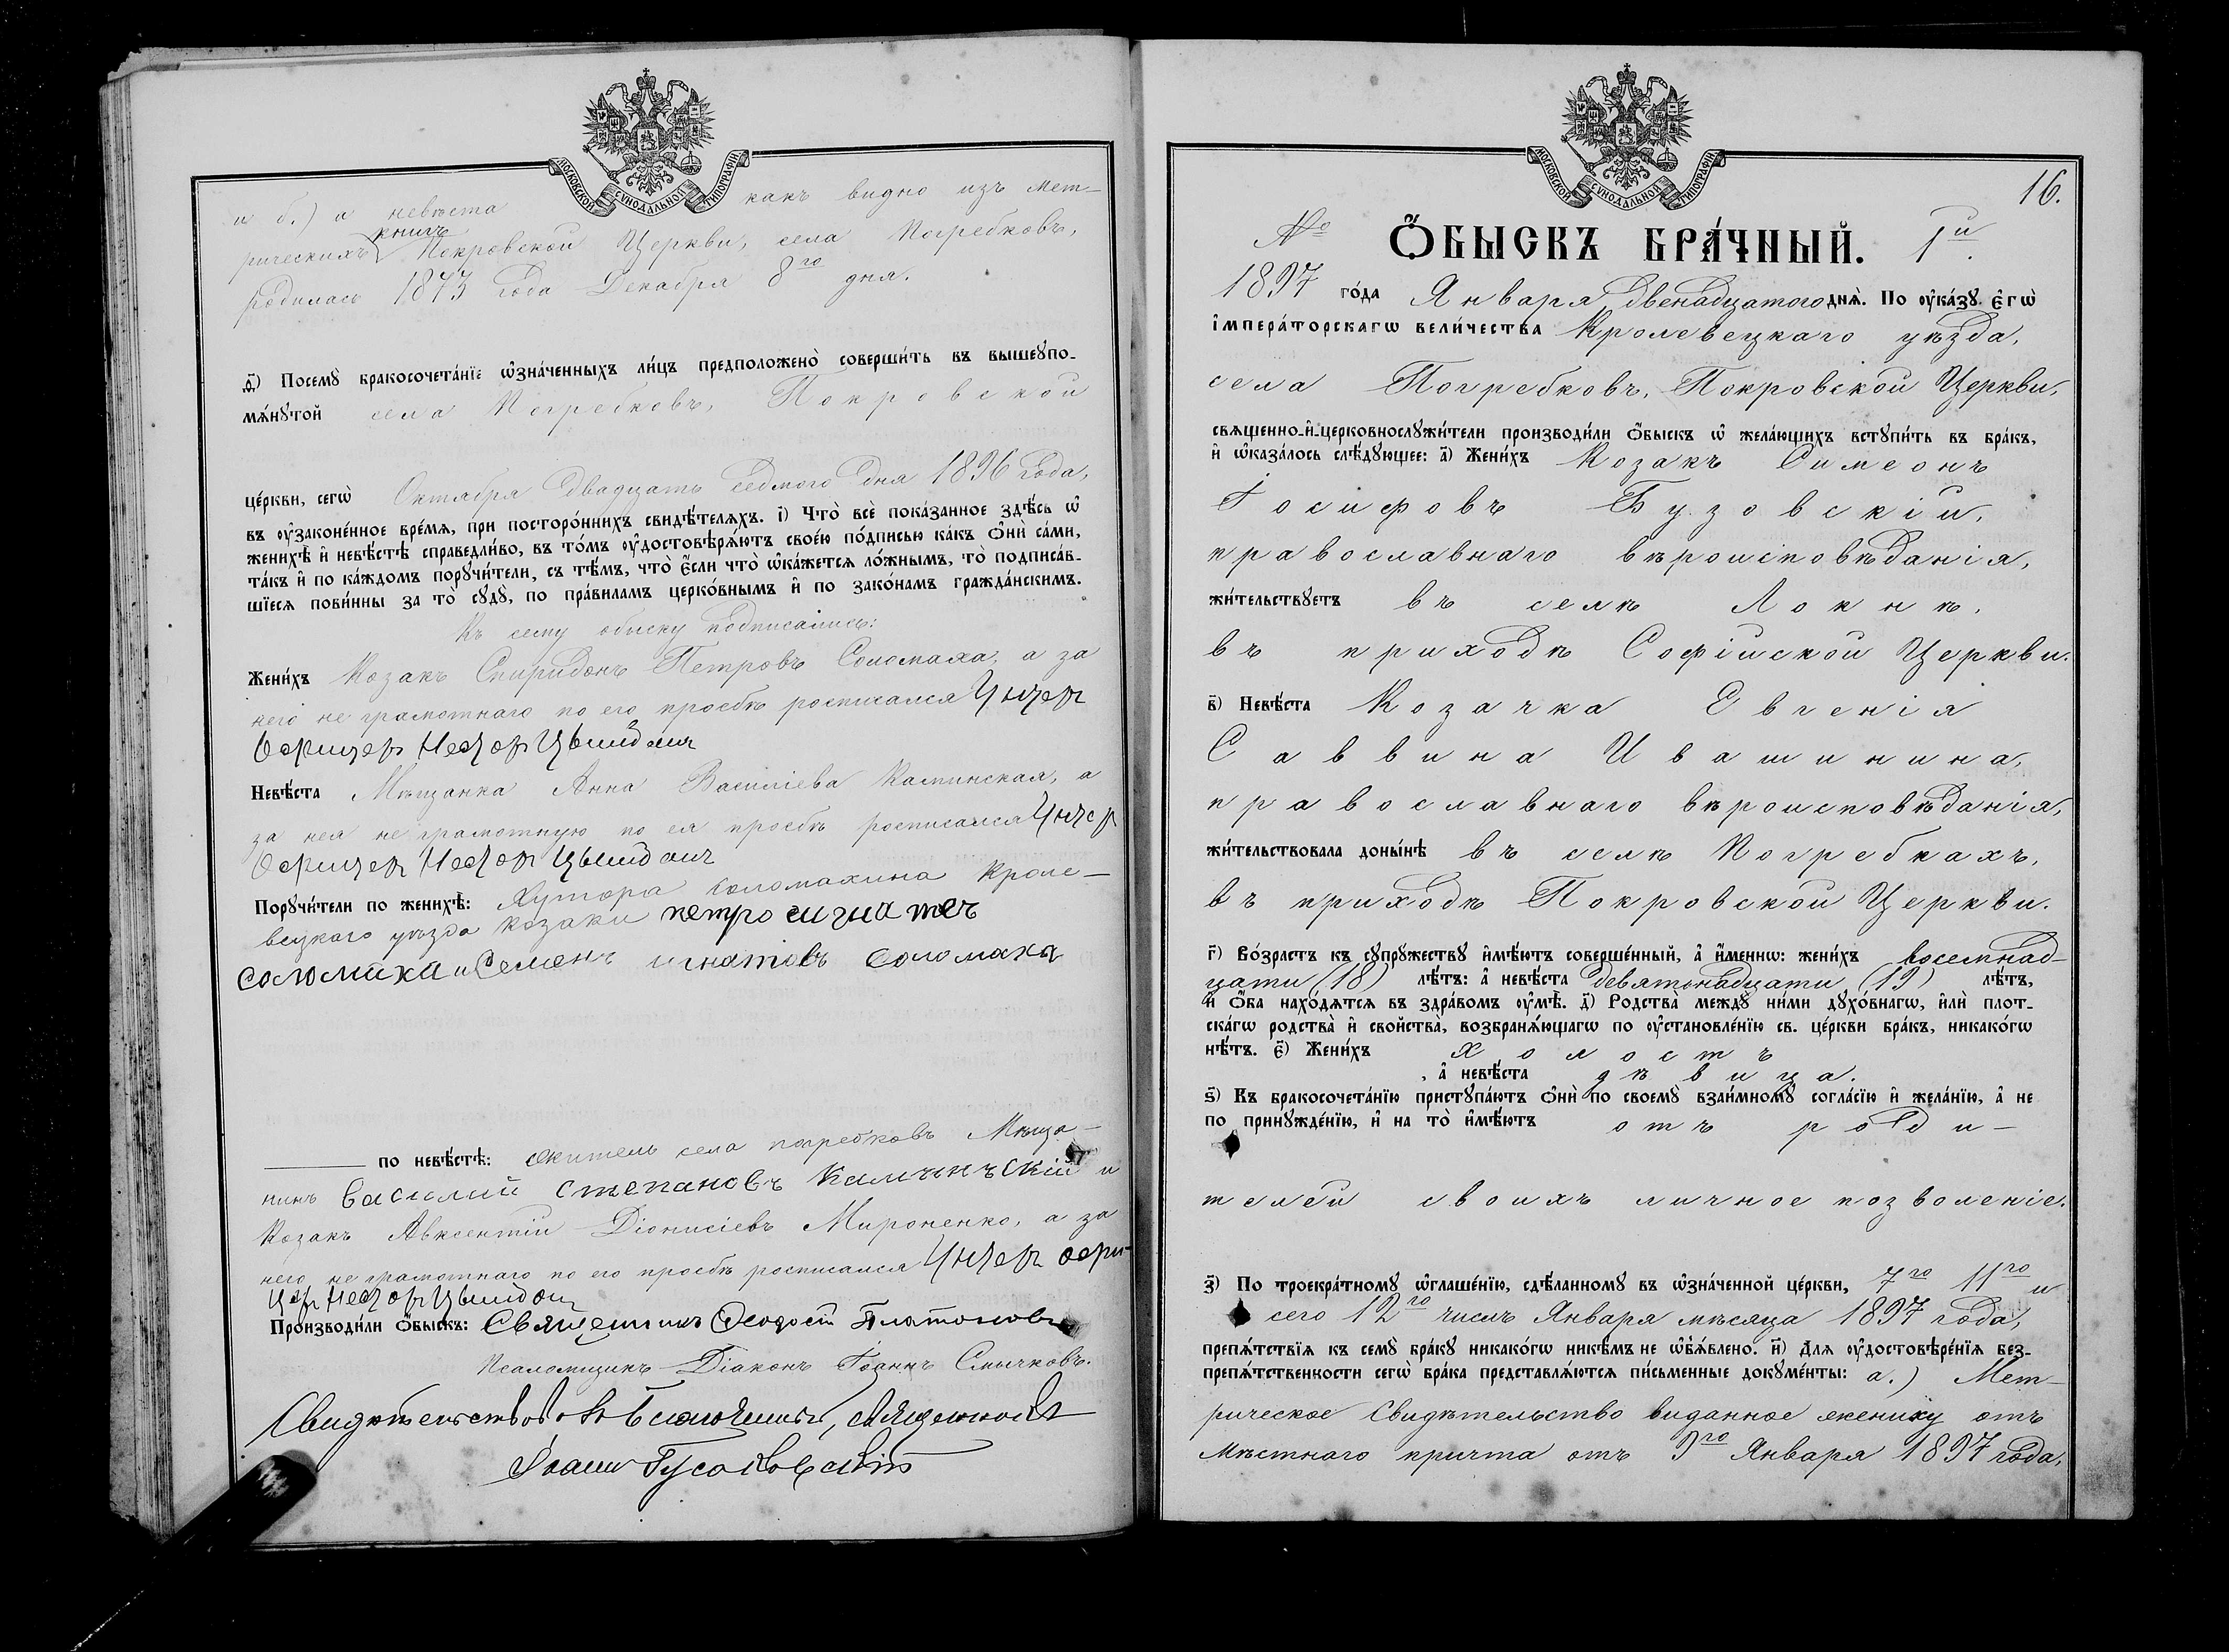 МОСКОВСКОЙ СУНОДАЛЬНОЙ ТИПОГРАФІИ
и б.) а невѣста какъ видно изъ мет-
рическихъ книгъ Покровской Церкви, села Погребковъ,
родилась 1873 года Декабря 8го дня.
ѳ҃) Посемꙋ̀ бракосочета́нїе ѡ҆зна́ченныхъ ли́цъ предположено̀ соверши́ть въ вышеꙋпо-
мѧ́нꙋтой села Погребковъ, Покровской
це́ркви, сегѡ̀ Октября двадцать седмого дня 1896 года,
въ ᲂу҆зако́ненное вре́мѧ, при посторо́ннихъ свидѣ́телѧхъ. і҃) Что̀ всѐ пока́занное здѣ́сь ѡ҆
женихѣ̀ и҆ невѣ́стѣ справедли́во, въ то́мъ ᲂу҆достовѣрѧ́ютъ свое́ю по́дписью ка́къ ѻ҆нѝ са́ми,
та́къ и҆ по ка́ждомъ порꙋчи́тели, съ тѣ́мъ, что̀ є҆́сли что̀ ѡ҆ка́жетсѧ ло́жнымъ, то̀ подписа́в-
шїесѧ пови́нны за то̀ сꙋдꙋ̀, по пра́виламъ церко́внымъ и҆ по зако́намъ гражда́нскимъ.
Къ сему обыску подписались:
Жени́хъ Козакъ Спиридонъ Петровъ Соломаха, а за
него не грамотнаго по его просбѣ росписался Унтеръ
Офицеръ Несторъ
Невѣ́ста Мѣщанка Анна Василіева Каминская, а
за нея не грамотную по ея просбѣ росписался Унтеръ
Офицеръ Несторъ
Порꙋчи́тели по женихѣ̀: Хутора Соломахина Кроле-
вецкаго уѣзда козаки петро
соломаха и Семенъ игнатовъ соломаха
по невѣ́стѣ: житель села погребковъ Мѣща-
нинъ Василий степановъ и
Козакъ Авксентій Діонисіевъ Мироненко, а за
него не грамотнаго по его просбѣ росписался Унтеръ офи-
церъ Несторъ
Производи́ли ѻ҆́быскъ: Священникъ Ѳеодосій Платоновъ
Псаломщикъ Діаконъ Іоаннъ Смычковъ.
Свидѣтельствовалъ священникъ
Іоаннъ
МОСКОВСКОЙ СУНОДАЛЬНОЙ ТИПОГРАФІИ
16.
№ Ѻ҆́БЫСКЪ БРА́ЧНЫЙ. 1й.
1897 го́да Января двенадцатого днѧ̀. По ᲂу҆ка́зꙋ є҆гѡ̀
і҆мпера́торскагѡ вели́чества Кролевецкаго уѣзда,
села Погребковъ, Покровской Церкви,
свѧщенно-и҆-церковнослꙋжи́тели производи́ли ѻ҆́быскъ ѡ҆ жела́ющихъ встꙋпи́ть въ бра́къ,
и҆ ѡ҆каза́лось слѣ́дꙋющее: а҃) Жени́хъ Козакъ Симеонъ
Іосифовъ Бузовскій,
православнаго вѣроисповѣданія,
жи́тельствꙋетъ въ селѣ Локнѣ,
въ приходѣ Софійской Церкви.
в҃) Невѣ́ста Козачка Евгенія
Саввина Ивашинина,
православнаго вѣроисповѣданія,
жи́тельствовала доны́нѣ въ селѣ Погребкахъ,
въ приходѣ Покровской Церкви.
г҃) Во́зрастъ къ сꙋпрꙋ́жествꙋ и҆мѣ́ютъ соверше́нный, а҆ и҆́меннѡ: жени́хъ восемнад-
цати (18) лѣ́тъ: а҆ невѣ́ста девятьнадцати (19) лѣ́тъ,
и҆ ѻ҆́ба нахо́дѧтсѧ въ здра́вомъ ᲂу҆мѣ̀. д҃) Родства̀ междꙋ̀ ни́ми дꙋхо́внагѡ, и҆лѝ плот-
ска́гѡ родства̀ и҆ свойства̀, возбранѧ́ющагѡ по ᲂу҆становле́нїю св. це́ркви бра́къ, никако́гѡ
нѣ́тъ. є҃) Жени́хъ холостъ
, а҆ невѣ́ста дѣвица.
ѕ҃) Къ бракосочета́нїю пристꙋпа́ютъ ѻ҆нѝ по своемꙋ̀ взаи́мномꙋ согла́сїю и҆ жела́нїю, а҆ не
по принꙋжде́нїю, и҆ на то̀ и҆мѣ́ютъ отъ роди-
телей своихъ личное позволеніе.
з҃) По троекра́тномꙋ ѡ҆глаше́нїю, сдѣ́ланномꙋ въ ѡ҆зна́ченной це́ркви, 7го 11го и
сего 12го числъ Января мѣсяца 1897 года,
препѧ́тствїѧ къ семꙋ̀ бра́кꙋ никако́гѡ никѣ́мъ не ѡ҆б̾ѧ́влено. и҃) Длѧ ᲂу҆достовѣре́нїѧ без-
препѧ́тственности сегѡ̀ бра́ка представлѧ́ютсѧ пи́сьменные докꙋме́нты: а.) Мет-
рическое свидѣтельство виданное жениху отъ
мѣстнаго причта отъ 9го Января 1897 года,